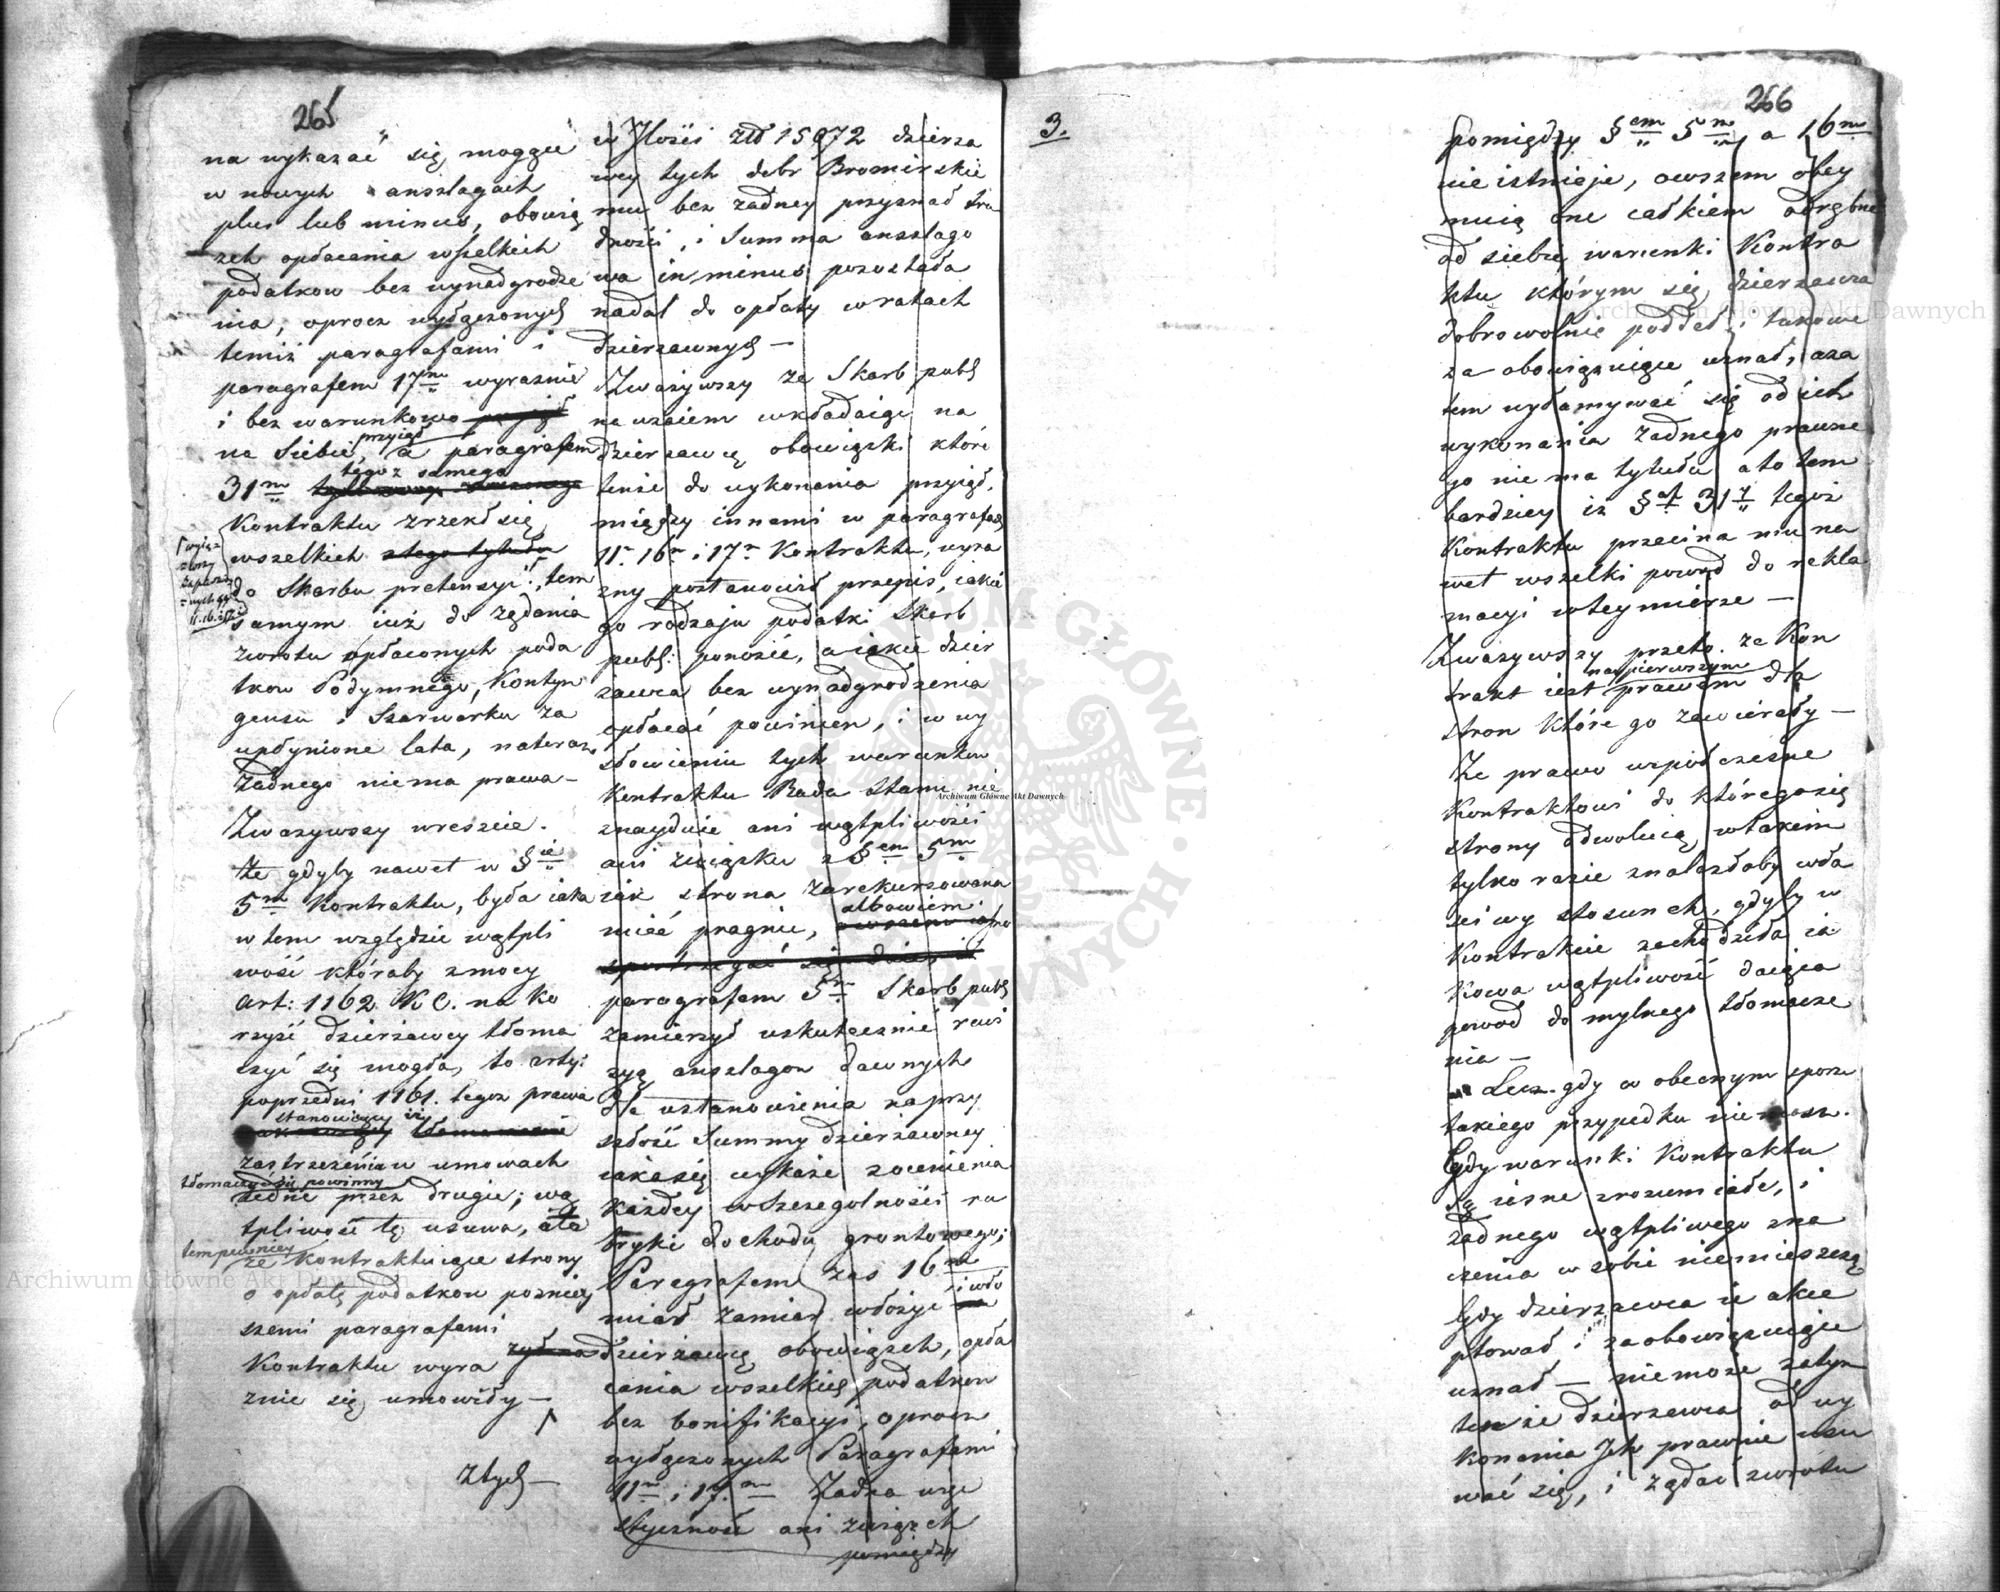 265
na wykazać się mogące
w nowych anszlagach
plus lub minus, obowią
zek opłacania wszelkich
podatkow bez wynadgrodze
nia, oprocz wyłączonych
temiż paragrafami i
paragrafem 17m wyraznie
i bez warunkowo przyjął
na siebie, przyiął a paragrafem
31m tegoż samego
Kontraktu zrzekł się
wszelkich z tego tytułu
do Skarbu pretensyi, tem
samym iuż do żądania
zwrotu opłaconych poda
tkow Podymnego, Kontyn
gensu i Szarwarku za
upłynione lata, nateraz
żadnego niema prawa –
Zwazywszy wreszcie.
Że gdyby nawet w §ie
5m Kontraktu, była iaka
w tem względzie wątpli
wość któraby z mocy
Art: 1162 K C. na ko
rzyść dzierżawcy tłoma
czyć się mogła, to arty:
poprzedni 1161. tegoz prawa
stanowiący iż
zastrzeżenia w umowach
tłomaczyć się powinny
jedne przez drugie; wą
tpliwość tę usuwa, ale
tem pewniey
że kontraktuiące strony
o opłatę podatkow pozniey
szemi paragrafami
Kontraktu wyra
znie się umowiły –
z tych –
w Ilości złł 15972 dzierza
wcy tych dobr Bromirskie
mu bez żadney przyznał tru
dności, i Summa anszlago
wa in minus pozostała
nadal do opłaty w ratach
dzierzawnych –
Zważywszy ze Skarb publ
nawzaiem wkładaiąc na
dzierzawcę obowiązki które
tenże do wykonania przyiął,
między innemi w paragrafach
11m 16m i 17m Kontraktu, wyra
zny postanowił przepis, iakie
go rodzaju podatki Skarb
publ: ponosić, a iakie dzier
żawca bez wynadgrodzenia
opłacać powinien, i w wy
słowieniu tych warunkow
Kontraktu Rada Stanu nie
znayduie ani wątpliwości
ani związku z §em 5m
iak strona zarekursowana
mieć pragnie, albowiem
paragrafem 5m Skarb publ
zamierzył uskutecznić rewi
zyą anszlagow dawnych
dla ustanowienia na przy
szłość Summy dzierżawney
iaka się wykaże z ocenienia
każdey w szczególności ru
bryki dochodu gruntowego;
Paragrafem zas 16m
miał zamiar włożyć i wło
dzierżawcę obowiązek, opła
cania wszelkich podatkow
bez bonifikacyi, oprocz
wyłączonych Paragrafami
11m i 17m Zadna więc
styczność ani związek
pomiędzy
3.
266
pomiędzy §em 5m, a 16m
nie istnieje, owszem obey
muią one całkiem odrębne
od siebie warunki Kontra
ktu którym się dzierzawca
dobrowolnie poddał i takowe
za obowiązuiące uznał, a za
tem wyłamywać się od ich
wykonania żadnego prawne
go nie ma tytułu a to tem
bardziey iż §af 31y tegoż
Kontraktu przecina mu na
wet wszelki powod do rekla
macyi w tey mierze –
Zwazywszy przeto. ze Kon
trakt iest naypierwszym prawem dla
stron które go zawierały –
Że prawo współczesne
Kontraktowi do którego się
strony odwołuią, w takim
tylko razie znalazłoby wła
ściwy stosunek, gdyby w
Kontrakcie zachodziła ia
kowa wątpliwość daiąca
powod do mylnego tłomacze
nia –
Lecz gdy w obecnym sporze
takiego przypadku nie masz.
Gdy warunki Kontraktu
są iasne zrozumiałe, i
żadnego wątpliwego zna
czenia w sobie niemieszczą
Gdy dzierzawca ie akce
ptował i za obowiązuiące
uznał – nie może zatym
tenże dzierzawca od wy
konania Ich prawnie usu
wać się, i żądać zwrotu
Archiwum Główne Akt Dawnych
Archiwum Główne Akt Dawnych
Archiwum Główne Akt Dawnych
ARCHIWUM GŁÓWNE AKT DAWNYCH